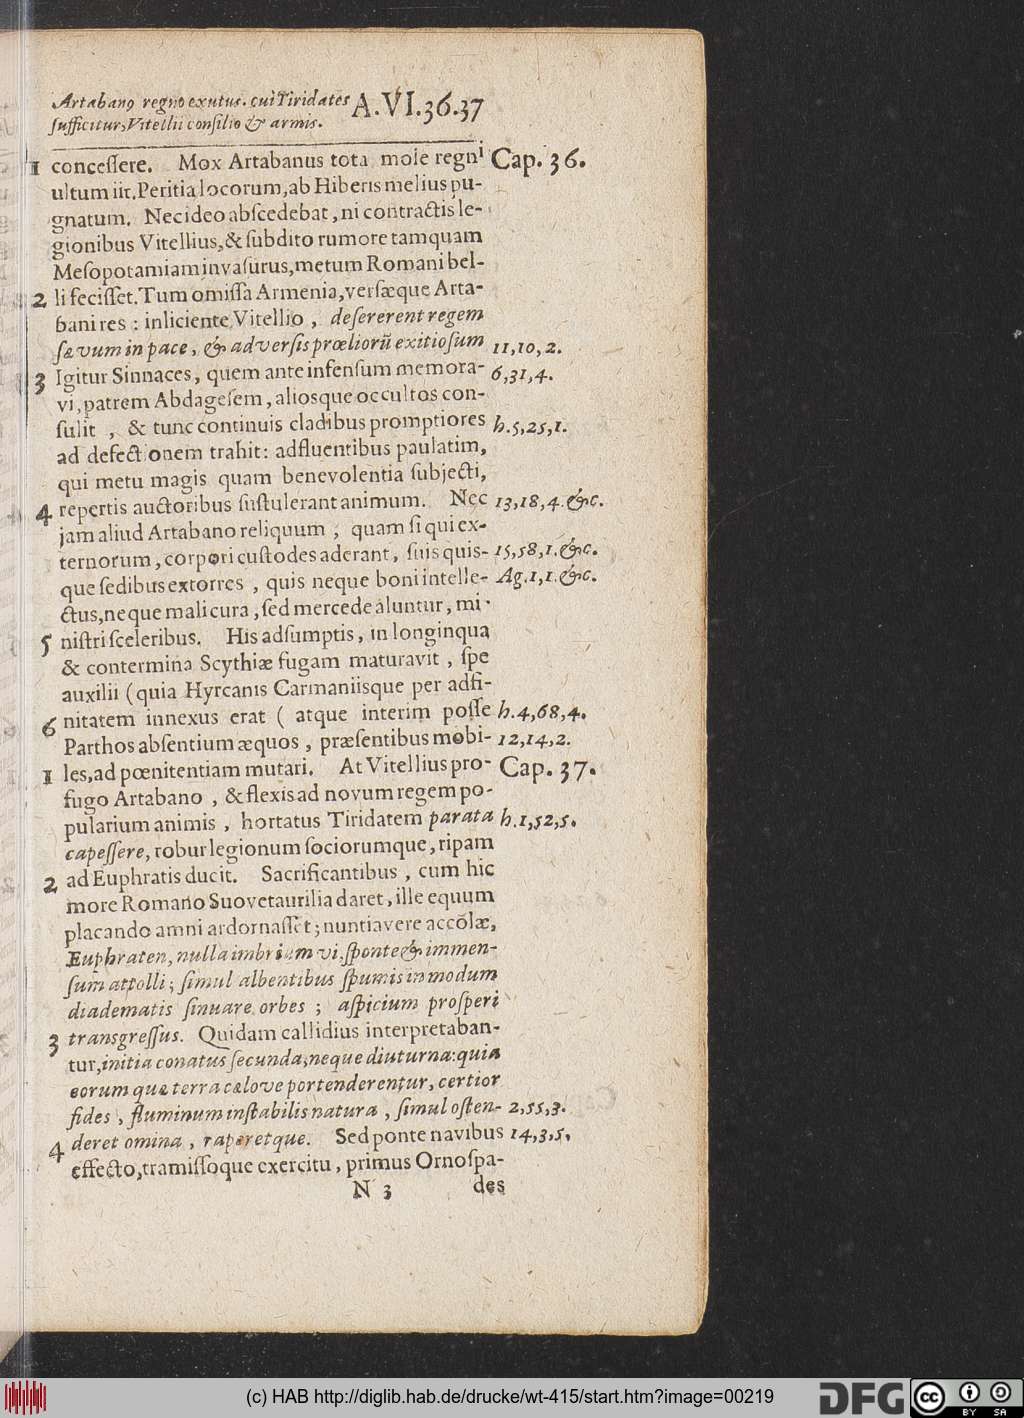 Artabanꝰ regno exutus. cui Tiridates A.VI.36.37
ſufficitur, Vitellii conſilio & armis.
1 conceſſere. Mox Artabanus tota mole regni Cap. 36.
ultum iit. Peritia locorum, ab Hiberis melius pu-
gnatum. Nec ideo abſcedebat, ni contractis le-
gionibus Vitellius, & ſubdito rumore tamquam
Meſopotamiam invaſurus, metum Romani bel-
2 li feciſſet. Tum omiſſa Armenia, verſæque Arta-
bani res : inliciente Vitellio , deſererent regem
ſævum in pace, & adverſis prœliorũ exitioſum 11,10,2.
3 Igitur Sinnaces, quem ante infenſum memora- 6,31,4.
vi, patrem Abdageſem, alioſque occultos con-
ſulit , & tunc continuis cladibus promptiores h.5,25,1.
ad defectionem trahit: adfluentibus paulatim,
qui metu magis quam benevolentia ſubjecti,
4 repertis auctoribus ſuſtulerant animum. Nec 13,18,4.&c.
jam aliud Artabano reliquum , quam ſi qui ex-
ternorum, corpori cuſtodes aderant, ſuis quis- 15,58,1.&c.
que ſedibus extorres , quis neque boni intelle- Ag.1,1.&c.
ctus, neque mali cura, ſed mercede aluntur, mi-
5 niſtri ſceleribus. His adſumptis, in longinqua
& contermina Scythiæ fugam maturavit , ſpe
auxilii (quia Hyrcanis Carmaniisque per adfi-
6 nitatem innexus erat ( atque interim poſſe h.4,68,4.
Parthos abſentium æquos , præſentibus mobi- 12,14,2.
1 les, ad pœnitentiam mutari. At Vitellius pro- Cap. 37.
fugo Artabano , & flexis ad novum regem po-
pularium animis , hortatus Tiridatem parata h.1,52,5.
capeſſere, robur legionum ſociorumque, ripam
2 ad Euphratis ducit. Sacrificantibus , cum hic
more Romano Suovetaurilia daret, ille equum
placando amni ardornaſſet; nuntiavere accolæ,
Euphraten, nulla imbrium vi, ſponte & immen-
ſum attolli; ſimul albentibus ſpumis in modum
diadematis ſinuare orbes ; aſpicium proſperi
3 transgreſſus. Quidam callidius interpretaban-
tur, initia conatus ſecunda, neque diuturna: quia
eorum quæ terra cælove portenderentur, certior
fides , fluminum inſtabilis natura , ſimul oſten- 2,55,3.
4 deret omina , raperetque. Sed ponte navibus 14,3,5.
effecto, tramiſſoque exercitu, primus Ornoſpa-
N 3 des
(c) HAB http://diglib.hab.de/drucke/wt-415/start.htm?image=00219 DFG cc BY SA